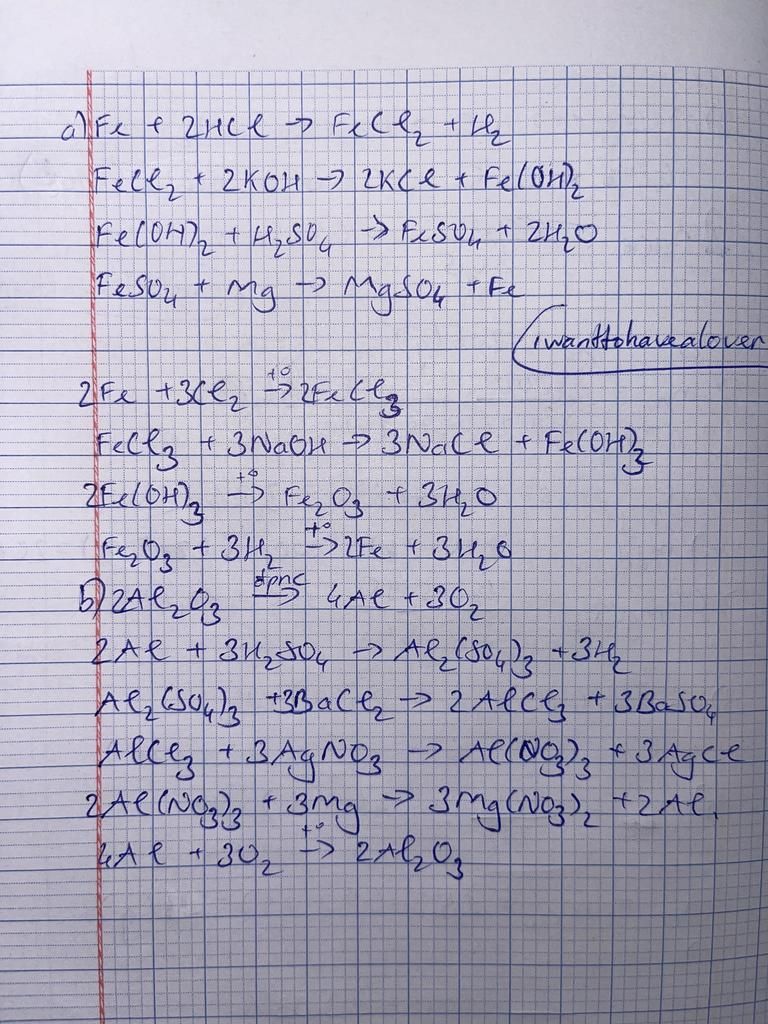 а) Fe + 2HCl → FeCl₂ + H₂
FeCl₂ + 2KOH → 2KCl + Fe(OH)₂
Fe(OH)₂ + H₂SO₄ → FeSO₄ + 2H₂O
FeSO₄ + Mg → MgSO₄ + Fe
iwanttohavealover
2Fe + 3Cl₂ →(t°) 2FeCl₃
FeCl₃ + 3NaOH → 3NaCl + Fe(OH)₃
2Fe(OH)₃ →(t°) Fe₂O₃ + 3H₂O
Fe₂O₃ + 3H₂ →(t°) 2Fe + 3H₂O
б) 2Al₂O₃ → 4Al + 3O₂
2Al + 3H₂SO₄ → Al₂(SO₄)₃ + 3H₂
Al₂(SO₄)₃ + 3BaCl₂ → 2AlCl₃ + 3BaSO₄
AlCl₃ + 3AgNO₃ → Al(NO₃)₃ + 3AgCl
2Al(NO₃)₃ + 3Mg → 3Mg(NO₃)₂ + 2Al
4Al + 3O₂ →(t°) 2Al₂O₃